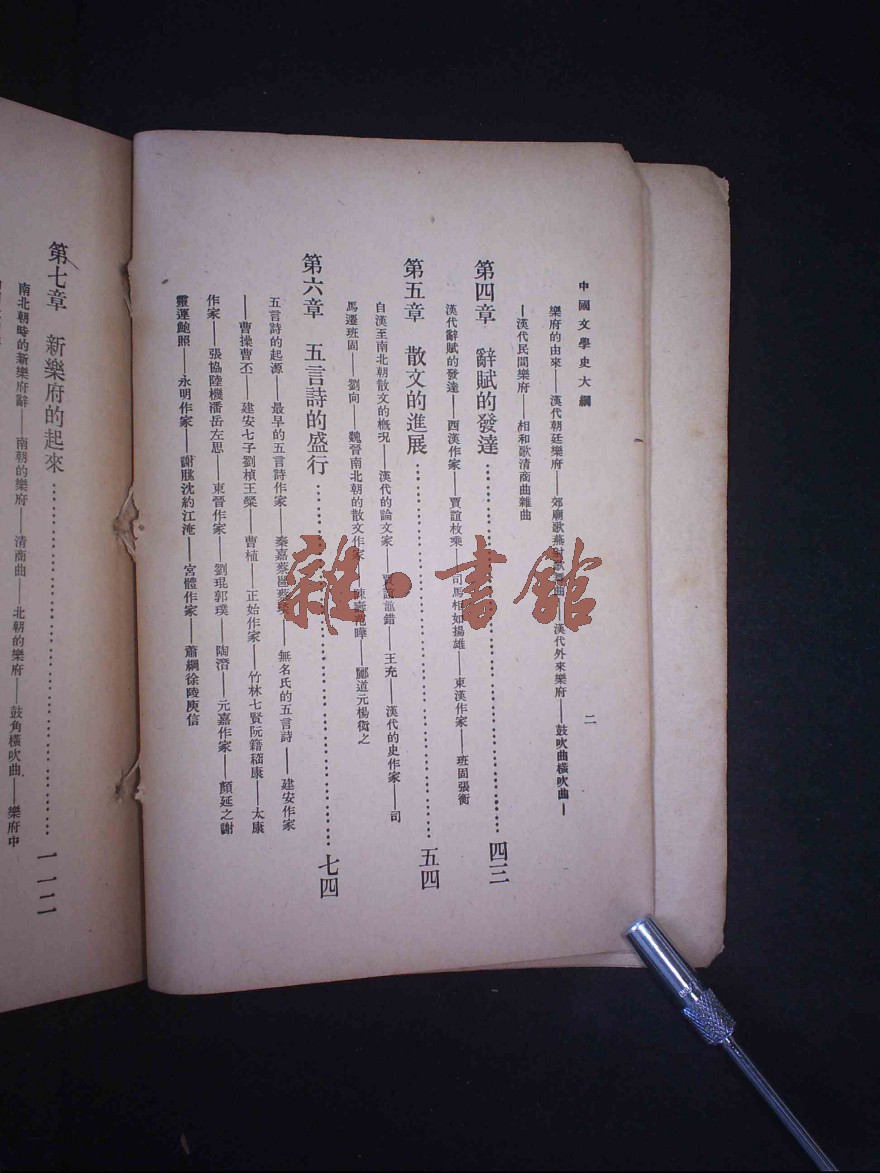 中國文學史大綱
二
樂府的由來——漢代朝廷樂府——郊廟歌燕射歌舞曲——漢代外來樂府——鼓吹曲橫吹曲—
—漢代民間樂府——相和歌清商曲雜曲
第四章 辭賦的發達…………四三
漢代辭賦的發達——西漢作家——賈誼枚乘——司馬相如揚雄——東漢作家——班固張衡
第五章 散文的進展…………五四
自漢至南北朝散文的槪況——漢代的論文家——賈誼鼂錯——王充——漢代的史作家——司
馬遷班固——劉向——魏晉南北朝的散文作家——陳壽范曄——酈道元楊衒之
第六章 五言詩的盛行…………七四
五言詩的起源——最早的五言詩作家——秦嘉蔡邕蔡琰——無名氏的五言詩——建安作家
——曹操曹丕——建安七子劉楨王粲——曹植——正始作家——竹林七賢阮籍嵇康——太康
作家——張協陸機潘岳左思——東晉作家——劉琨郭璞——陶潛——元嘉作家——顏延之謝
靈運鮑照——永明作家——謝朓沈約江淹——宮體作家——蕭綱徐陵庾信
第七章 新樂府的起來…………一一二
南北朝時的新樂府辭——南朝的樂府——清商曲——北朝的樂府——鼓角橫吹曲——樂府中
雜·書館